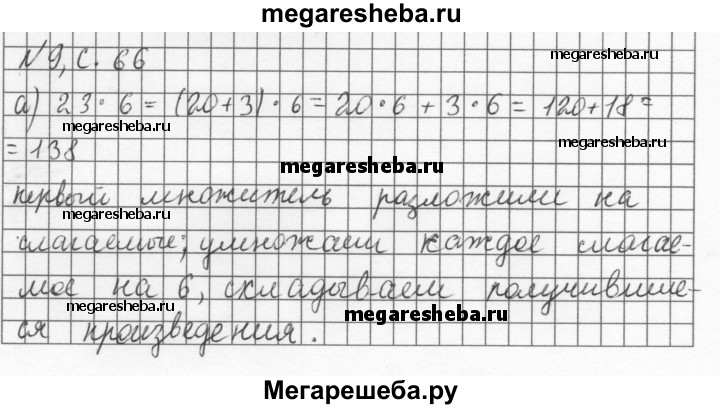 megaresheba.ru
№9, с. 66
megaresheba.ru
а) 23 · 6 = (20+3) · 6 = 20 · 6 + 3 · 6 = 120+18 =
megaresheba.ru
megaresheba.ru
= 138
megaresheba.ru
первый множитель разложили на
megaresheba.ru
слагаемые; умножаем каждое слагае-
мое на 6, складываем получивши-
megaresheba.ru
megaresheba.ru
еся произведения.
Мегарешеба.ру